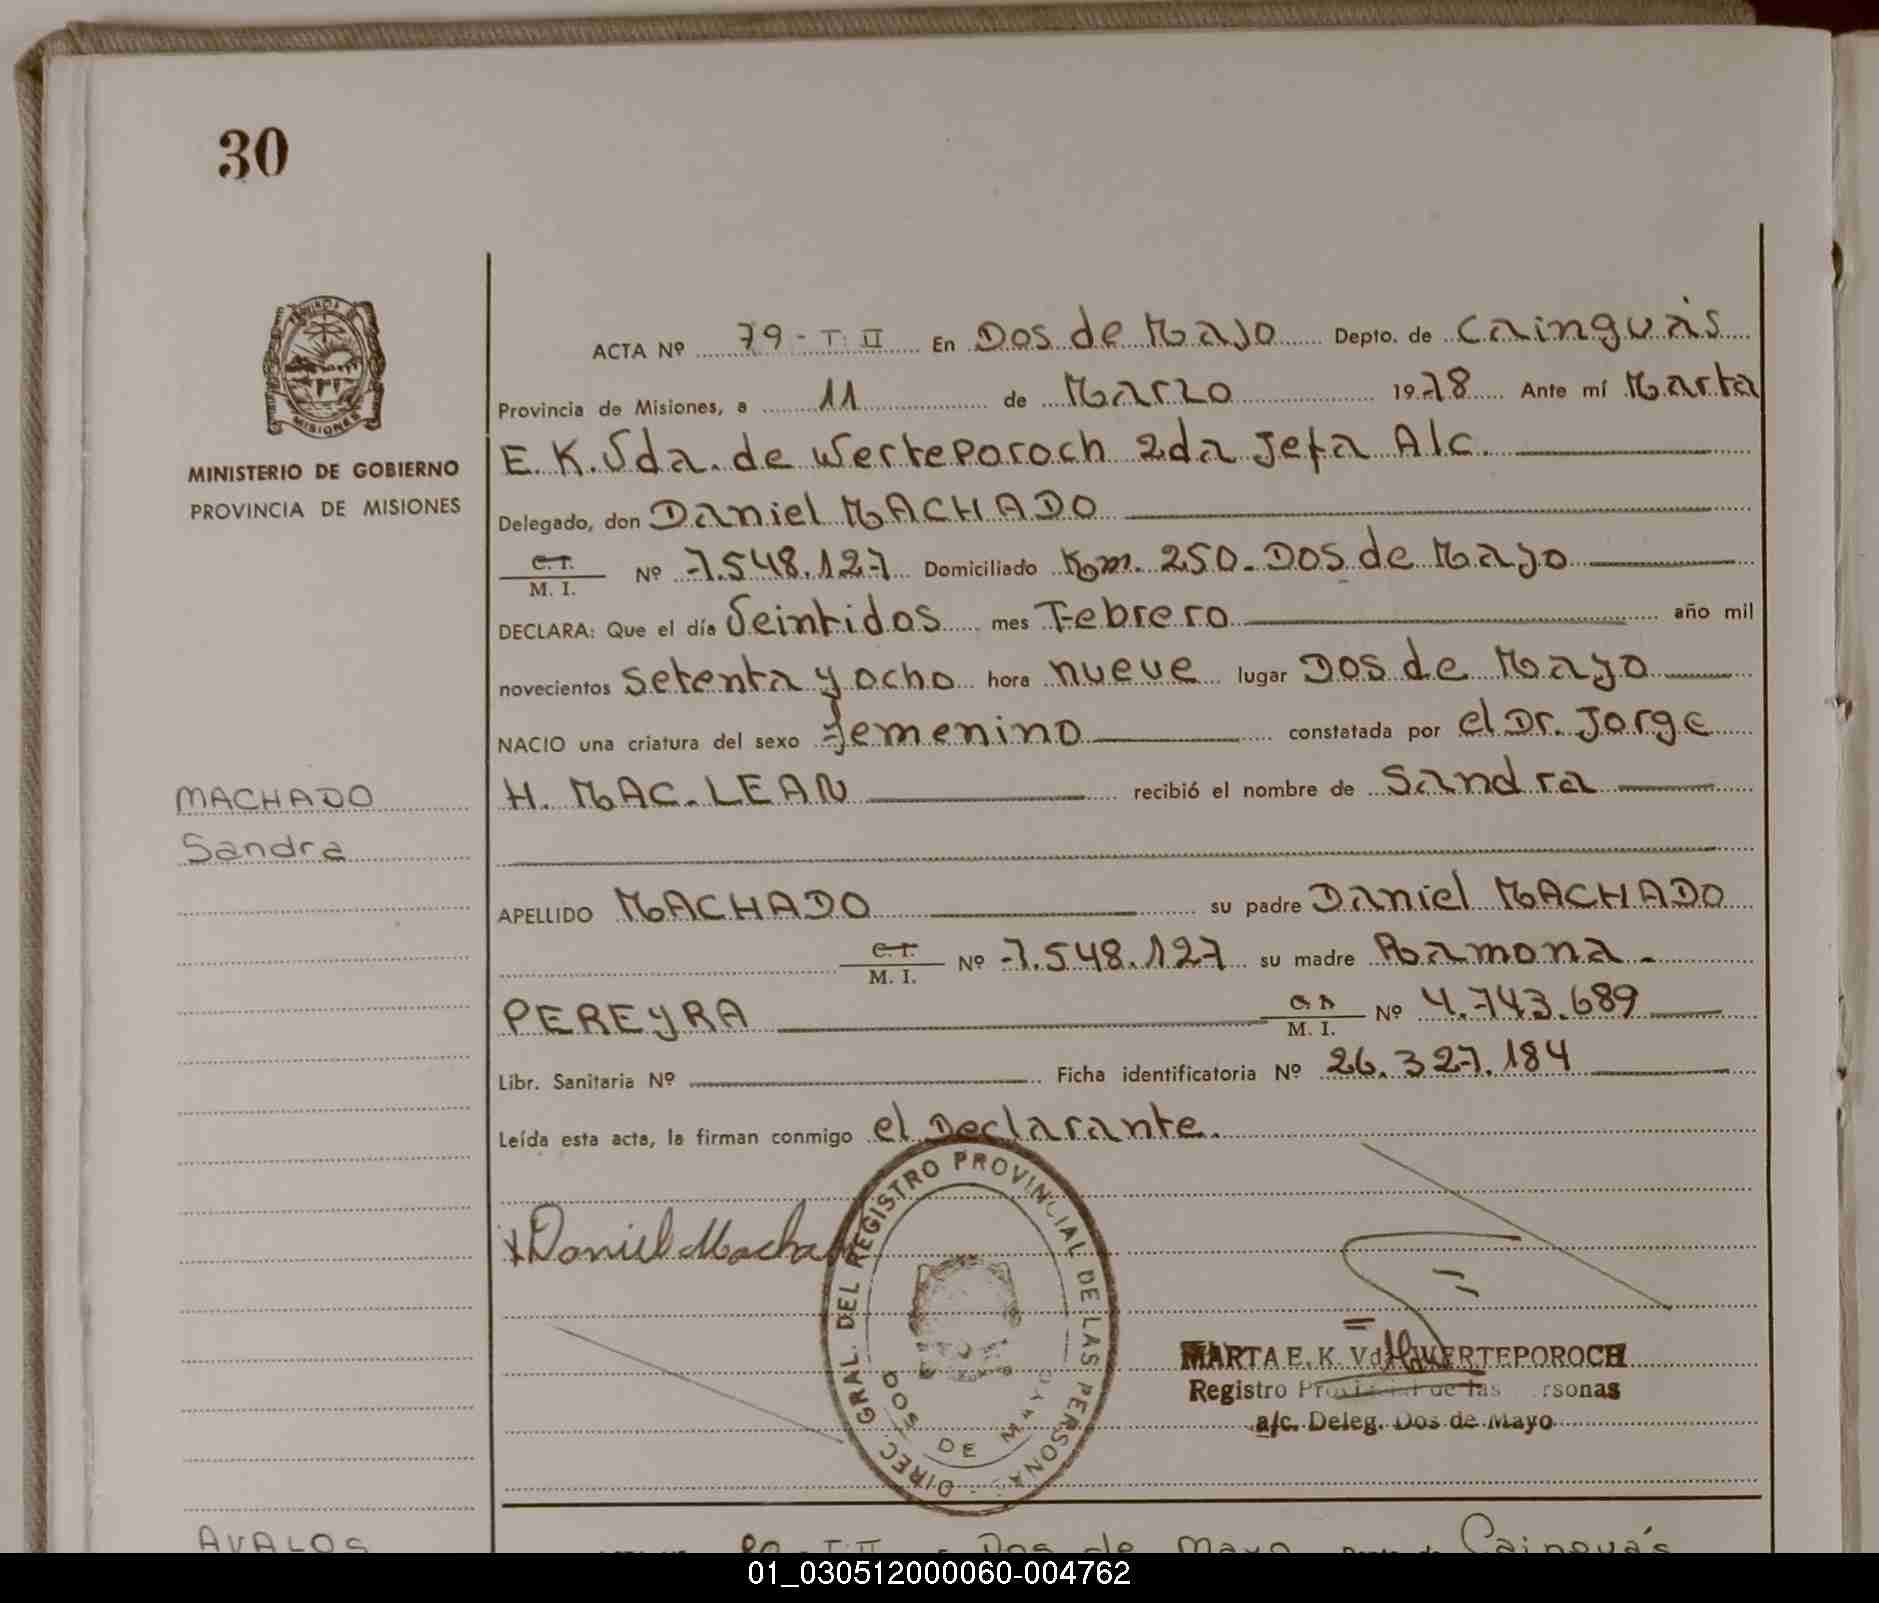 30
PROVINCIA DE
MISIONES
MINISTERIO DE GOBIERNO
PROVINCIA DE MISIONES
ACTA Nº 79 - T. II En Dos de Mayo Depto. de Cainguás
Provincia de Misiones, a 11 de Marzo 1978 Ante mí Marta
E. K. Vda. de Werteporoch 2da Jefa A/c.
Delegado, don Daniel MACHADO
C. I. / M. I. Nº 7.548.127 Domiciliado Km. 250. Dos de Mayo
DECLARA: Que el día Veintidos mes Febrero año mil
novecientos setenta y ocho hora nueve lugar Dos de Mayo
NACIO una criatura del sexo femenino constatada por el Dr. Jorge
MACHADO H. MAC. LEAN recibió el nombre de Sandra
Sandra
APELLIDO MACHADO su padre Daniel MACHADO
C. I. / M. I. Nº 7.548.127 su madre Ramona
PEREYRA M. I. Nº 4.743.689
Libr. Sanitaria Nº Ficha identificatoria Nº 26.327.184
Leída esta acta, la firman conmigo el Declarante.
Daniel Macha
DIREC. GRAL. DEL REGISTRO PROVINCIAL DE LAS PERSONAS
DOS DE MAYO
MARTA E. K. Vda WERTEPOROCH
Registro Provincial de las Personas
a/c. Deleg. Dos de Mayo
AVALOS
80 - T. II Dos de Mayo Cainguás
01_030512000060-004762